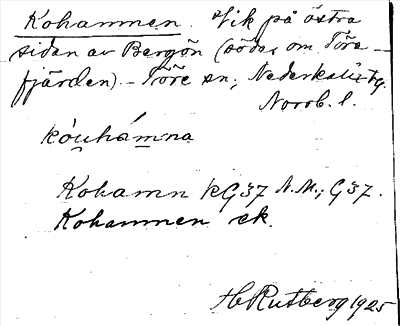 Kohamnen. Vik på östra
sidan av Bergön (söder om Töre-
fjärden). - Töre sn; Nederkalix tg.
Norrb. l.
kóuhámna
Kohamn KG37 N.M.; G37.
Kohamnen ek.
H Rutberg 1925